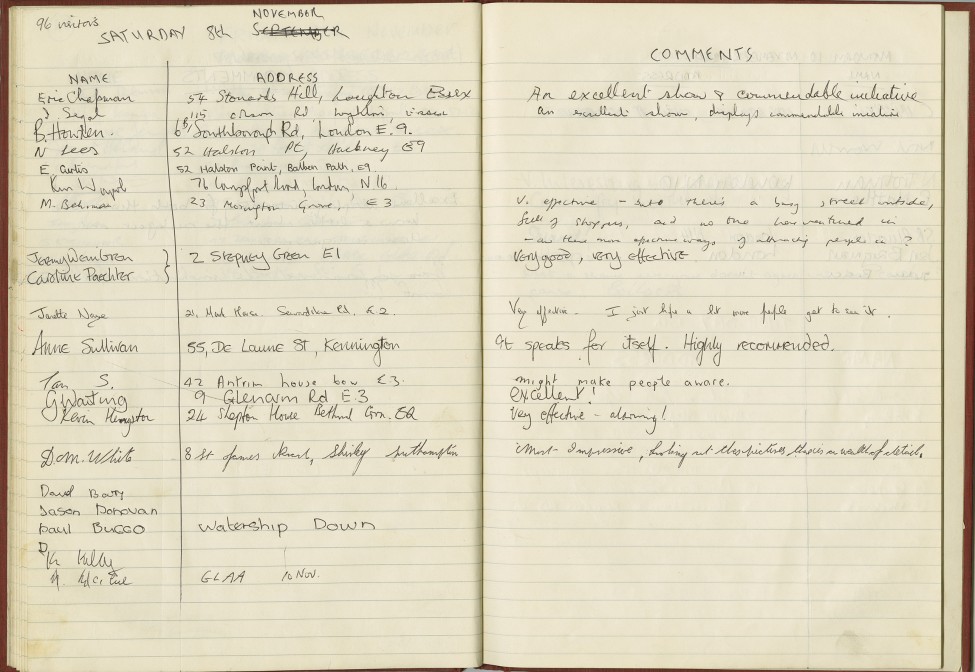 96 visitors
NOVEMBER
SATURDAY 8th SEPTEMBER
COMMENTS
NAME ADDRESS
Eric Chapman 54 Stonards Hill, Loughton Essex An excellent show & commendable initiative
J Segal Rd an excellent show, displays commendable initiative
B. Howden. Southborough Rd, London E.9.
N Lees 52 Halston Pt, Hackney E9
E. Curtis 52 Halston Point, Path, E9
76 Road, London N16.
M. 23 Mornington Grove, E3 V. effective - but there's a busy street outside,
full of shoppers, and no one has ventured in
- are there more ways of attracting people in?
Jeremy Weinbren 2 Stepney Green E1 Very good, very effective
Caroline Paechter
Janette 21, E.2. Very effective. I just hope a lot more people get to see it.
Anne Sullivan 55, De Laune St, Kennington It speaks for itself. Highly recommended.
Ian S. 42 Antrim house bow E3. might make people aware.
G Waiting 9 Glenarm Rd E.3 excellent!
Kevin 24 House Bethnal Grn. E2 Very effective - alarming!
D.M. White 8 St James Road, Shirley Southampton Most Impressive, looking at the pictures there's a wealth of detail.
David
Jason Donovan
Paul Bucco Watership Down
Kelly
GLAA 10 Nov.